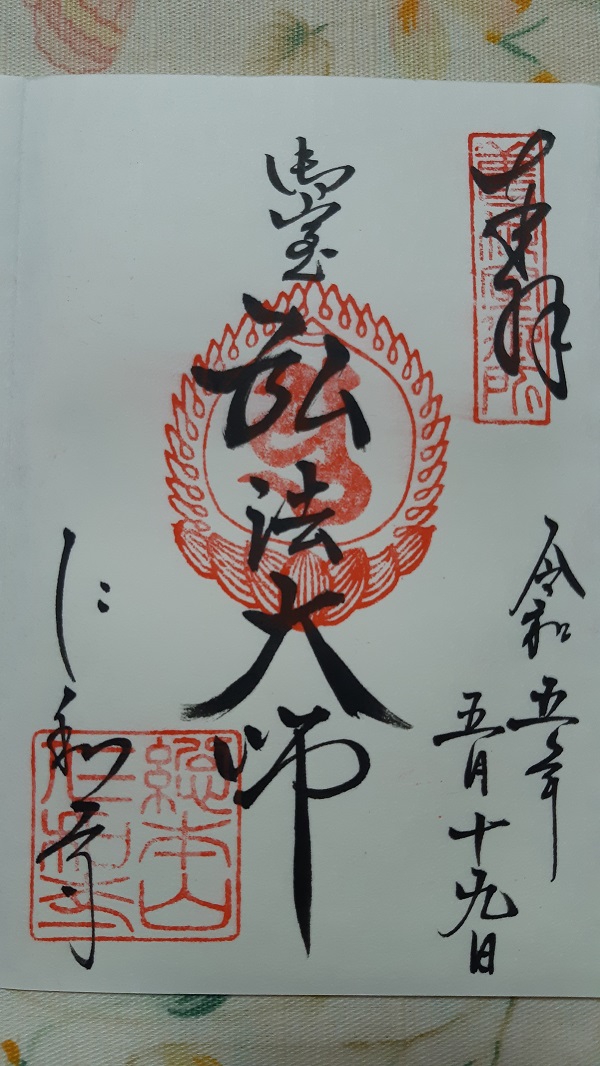 奉拝
令和五年
五月十九日
御室
弘法大師
仁和寺
總本山
仁和寺